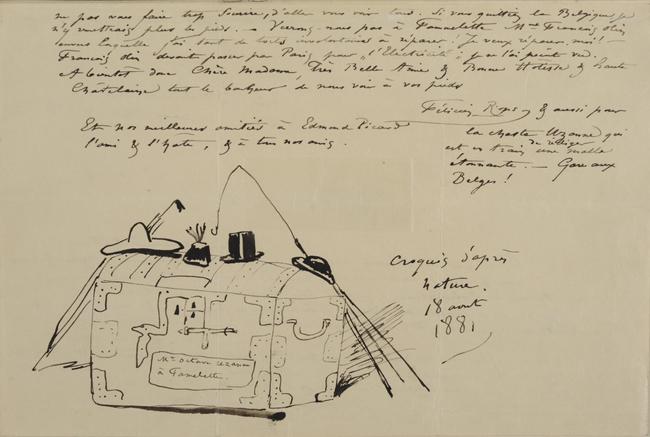 ne pas nous faire trop Sourire, d'aller vous voir tard. Si vous quittiez la Belgique je
n'y mettrais plus les pieds. – Verrons-nous pas à Famelette Mme François
laquelle j'ai tant de torts involontaires à réparer. Je veux réparer, moi!
François devait passer par Paris pour "l'Electricité" je ne l'ai point vu.
A bientôt donc Chère Madame, Très Belle Amie & Bonne Hôtesse & haute
Châtelaine tout le bonheur de nous voir à vos pieds
Félicien Rops & aussi pour
la chaste Uzanne qui
est en train de rédiger une malle
étonnante. – Gare aux
Belges!
Et nos meilleures amitiés à Edmond Picard
l'ami & l'hôte, & à tous nos amis.
Croquis d'après
Nature.
18 août
1881
Mr Octave Uzanne
à Famelette